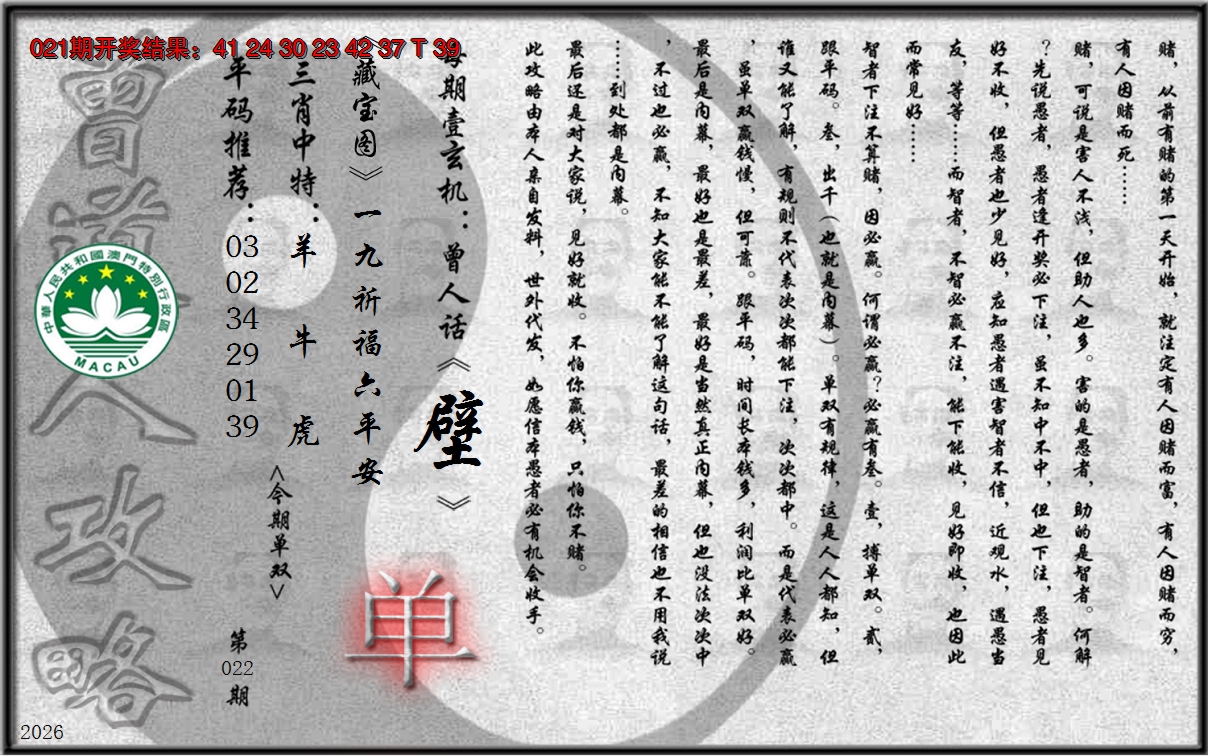 021期开奖结果：41 24 30 23 42 37 T 39
赌，从前有赌的第一天开始，就注定有人因赌而富，有人因赌而穷，
有人因赌而死……
赌，可说是害人不浅，但助人也多。害的是愚者，助的是智者。何解
？先说愚者，愚者逢开奖必下注，虽不知中不中，但也下注，愚者见
好不收，但愚者也少见好，应知愚者遇害智者不信，近观水，遇愚当
友，等等……而智者，不智必赢不注，能下能收，见好即收，也因此
而常见好……
智者下注不算赌，因必赢。何谓必赢？必赢有叁。壹，搏单双。贰，
跟平码。叁，出千（也就是内幕）。单双有规律，这是人人都知，但
谁又能了解，有规则不代表次次都能下注，次次都中。而是代表必赢
，虽单双赢钱慢，但可靠。跟平码，时间长本钱多，利润比单双好。
最后是内幕，最好也是最差，最好是当然真正内幕，但也没法次次中
，不过也必赢，不知大家能不能了解这句话，最差的相信也不用我说
……到处都是内幕。
最后还是对大家说，见好就收。不怕你赢钱，只怕你不赌。
此攻略由本人亲自发料，世外代发，如愿信本愚者必有机会收手。
每期壹玄机：曾人话《壁》
《藏宝图》一九祈福六平安
三肖中特：羊 牛 虎
<今期单双>
单
平码推荐：03 02 34 29 01 39
第022期
曾道人攻略
中華人民共和國澳門特別行政區
MACAU
2026